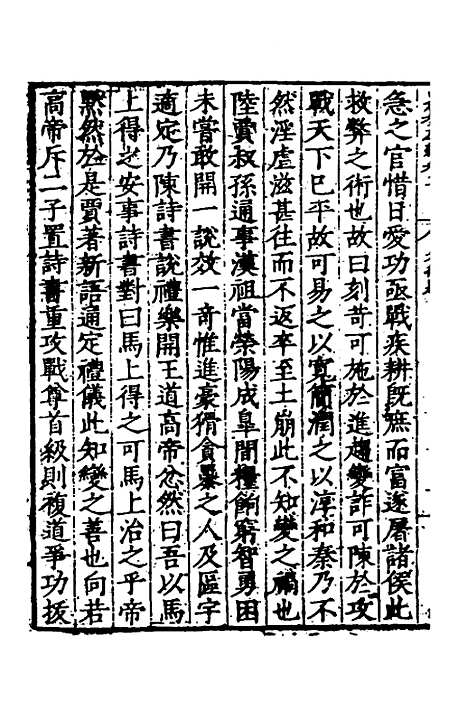 急之官惜日愛功亟戰疾耕既庶而富遂屠諸侯此
救弊之術也故曰刻苛可施於進趨變詐可陳於攻
戰天下已平故可易之以寬簡潤之以淳和秦乃不
然淫虐滋甚往而不返卒至土崩此不知變之禍也
陸賈叔孫通事漢祖當滎陽成臯間糧餉窮智勇困
未嘗敢開一說效一奇惟進豪猾貪暴之人及區宇
適定乃陳詩書說禮樂開王道高帝忿然曰吾以馬
上得之安事詩書對曰馬上得之可馬上治之乎帝
黙然於是賈著新語通定禮儀此知變之善也向若
高帝斥二子置詩書重攻戰尊首級則複道爭功拔